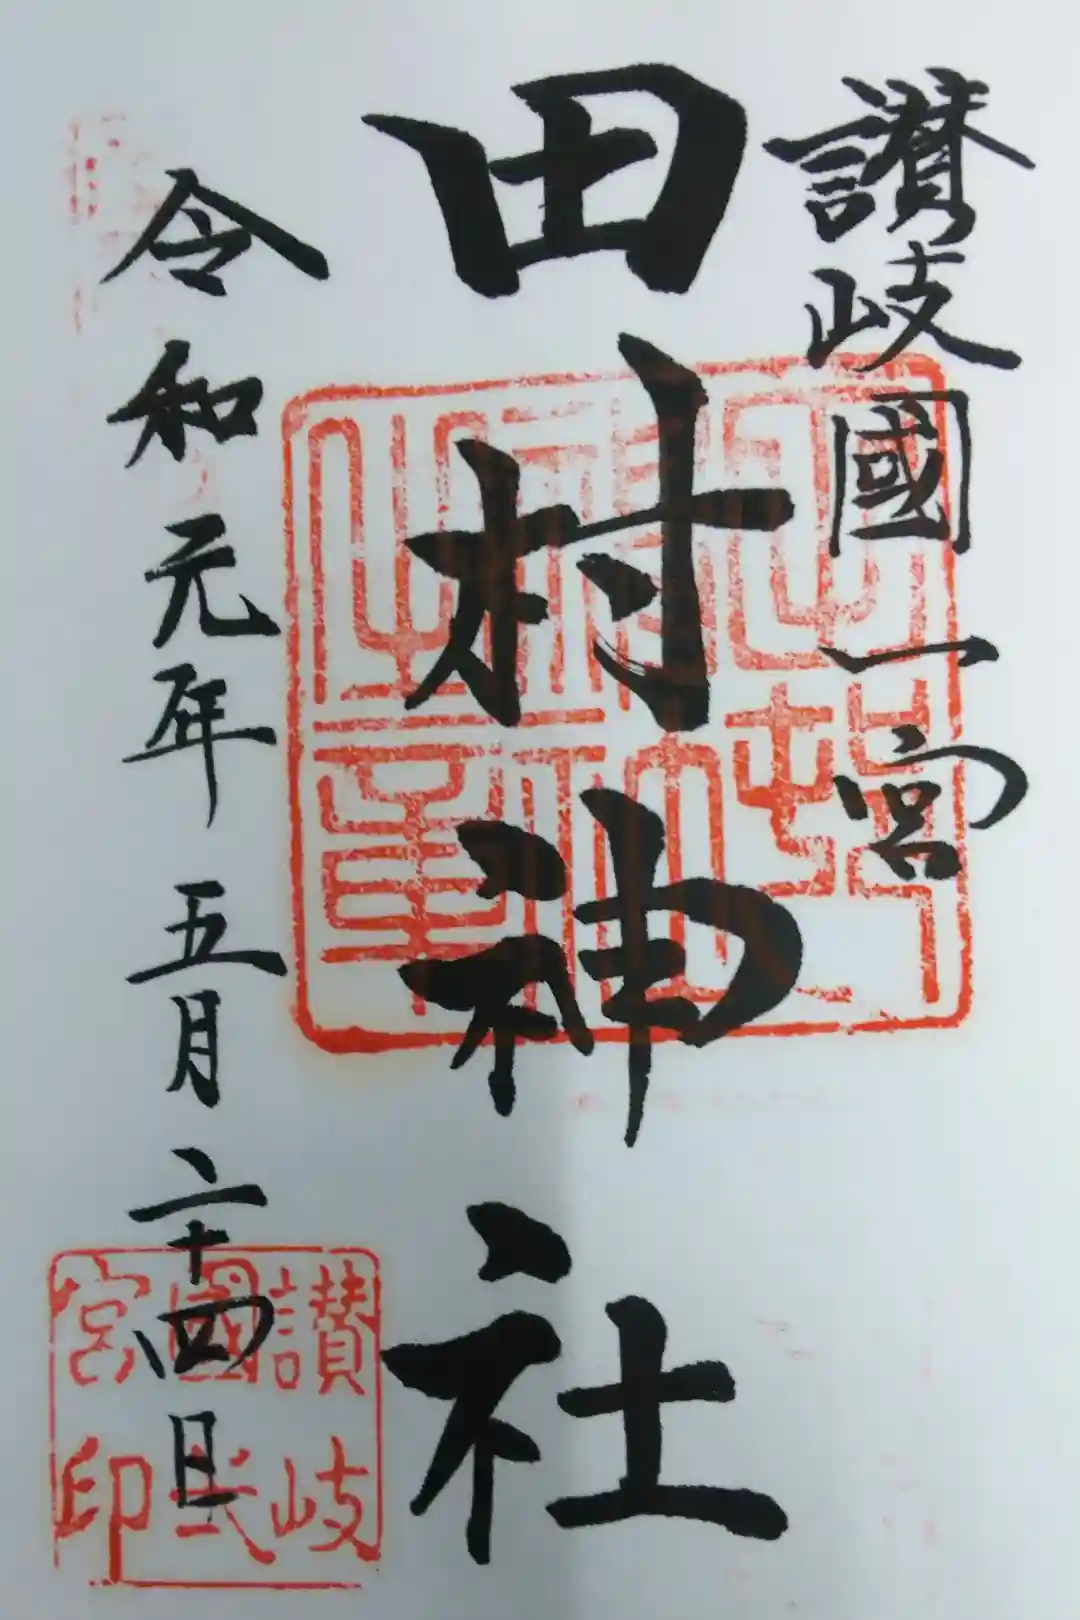 讃岐國一宮
田村神社
令和元年五月二十四日
讃岐
國弌
宮印